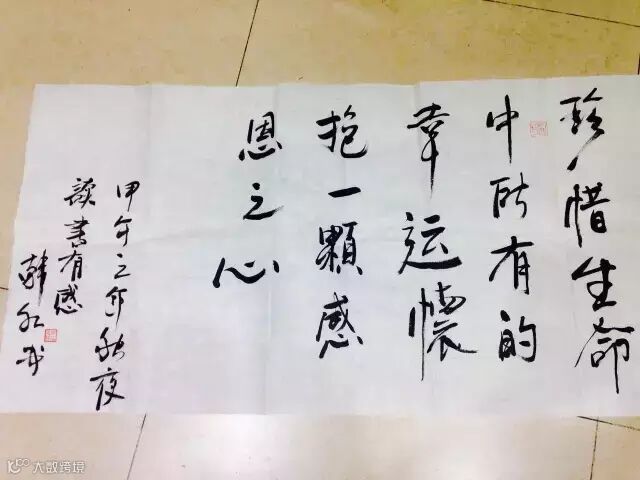 珍惜生命
中所有的
幸运懷
抱一顆感
恩之心
甲午之年秋夜
讀書有感
韓红
大数跨境